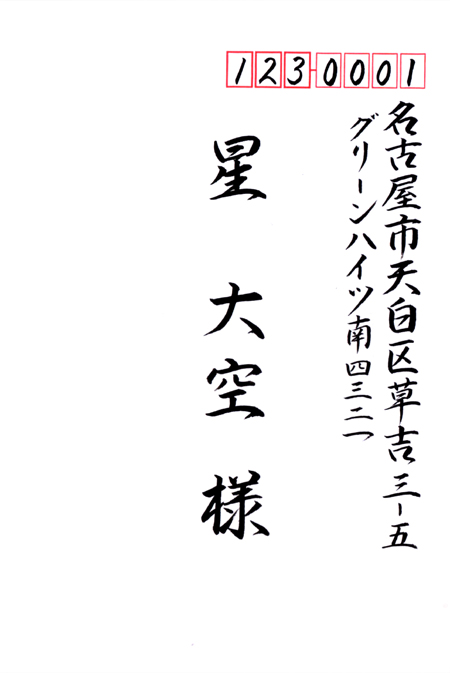 123-0001
名古屋市天白区草吉三-五
グリーンハイツ南四三二一
星 大空 様